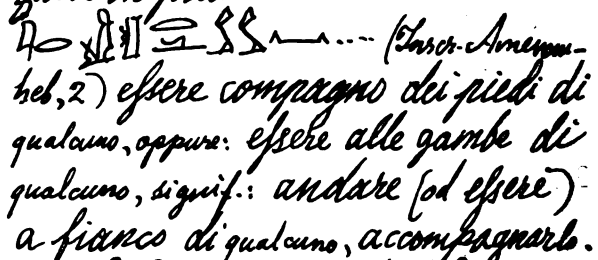 (Inscr. Amenem-
heb, 2) eſsere compagno dei piedi di
qualcuno, oppure: eſsere alle gambe di
qualcuno, signif.: andare (od eſsere)
a fianco di qualcuno, accompagnarlo.